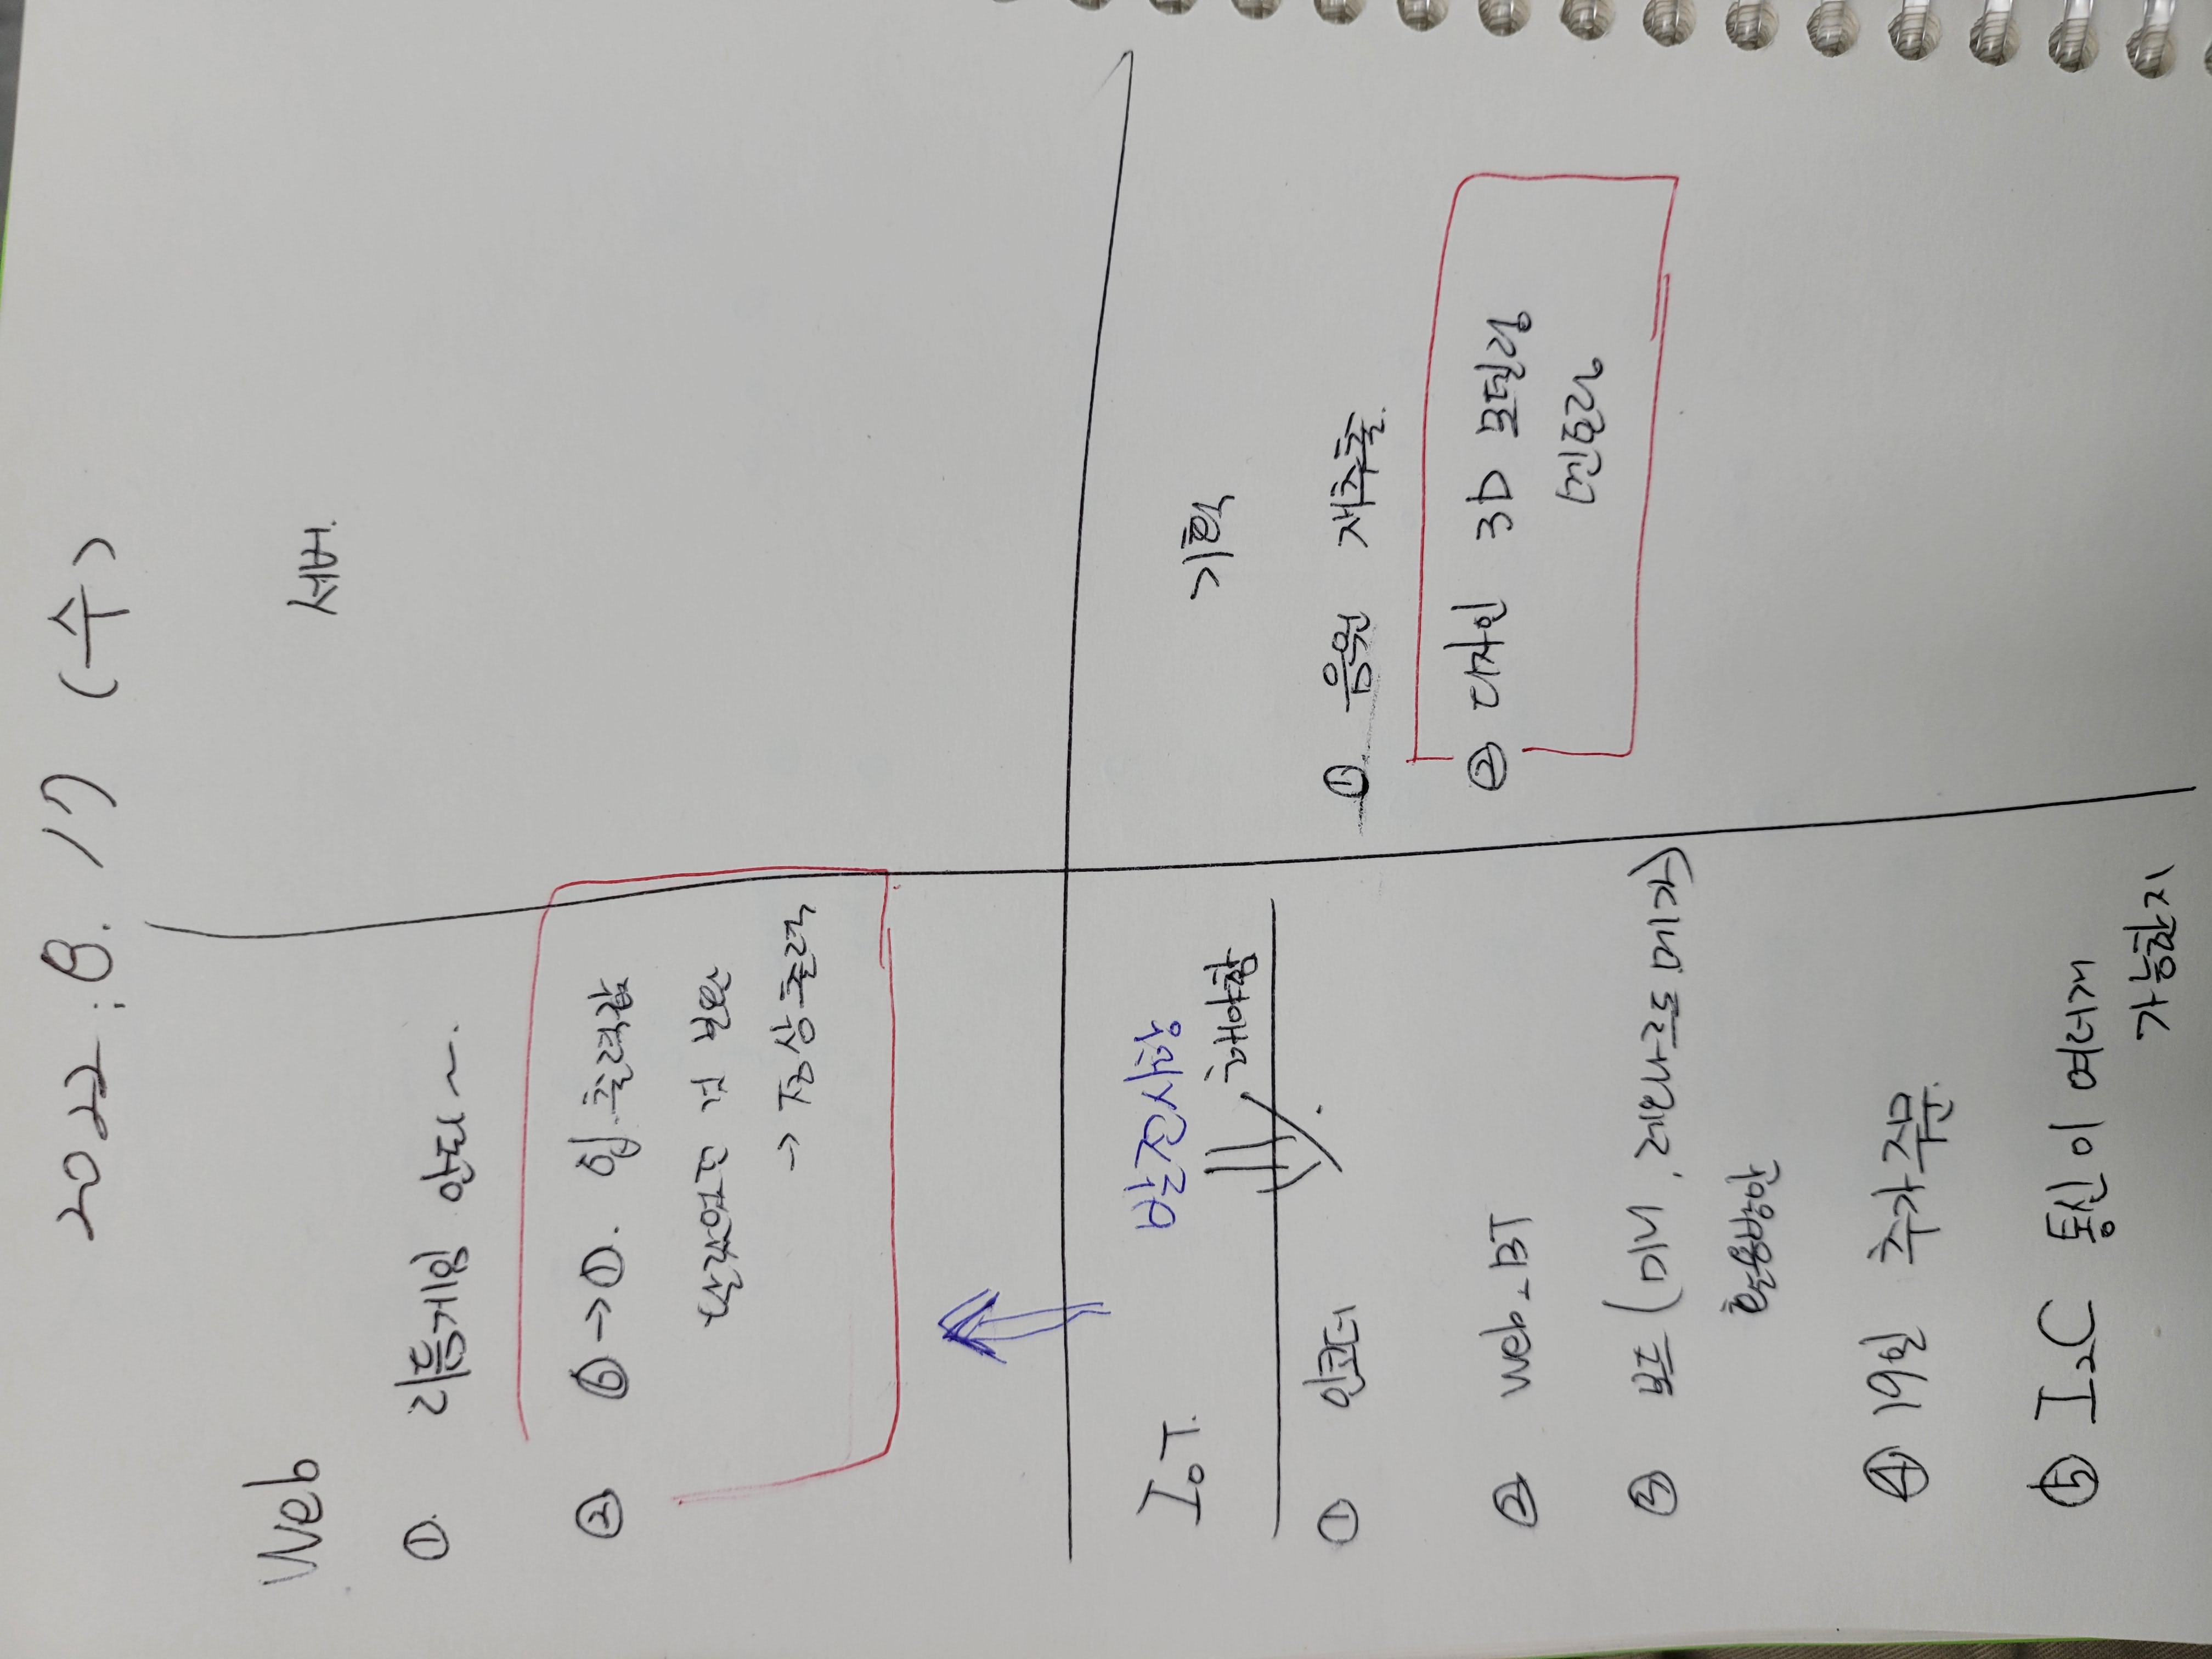 2022. 8. 17 (수)
Web
① 리듬게임 안되~.
② ⑥→①. 입.출력값
달랐었던 것 보완
→ 정상출력
서버.
IoT.
발전사항
해야함
① 인코더
② Web_BT
③ 보드 (미니, 레오나르도, 메가)
활용방안
④ 19일 추가주문.
⑤ I2C 통신이 여러개
가능한지
기획
① 음원 재추출.
② 디자인 3D 모델링
멘토링